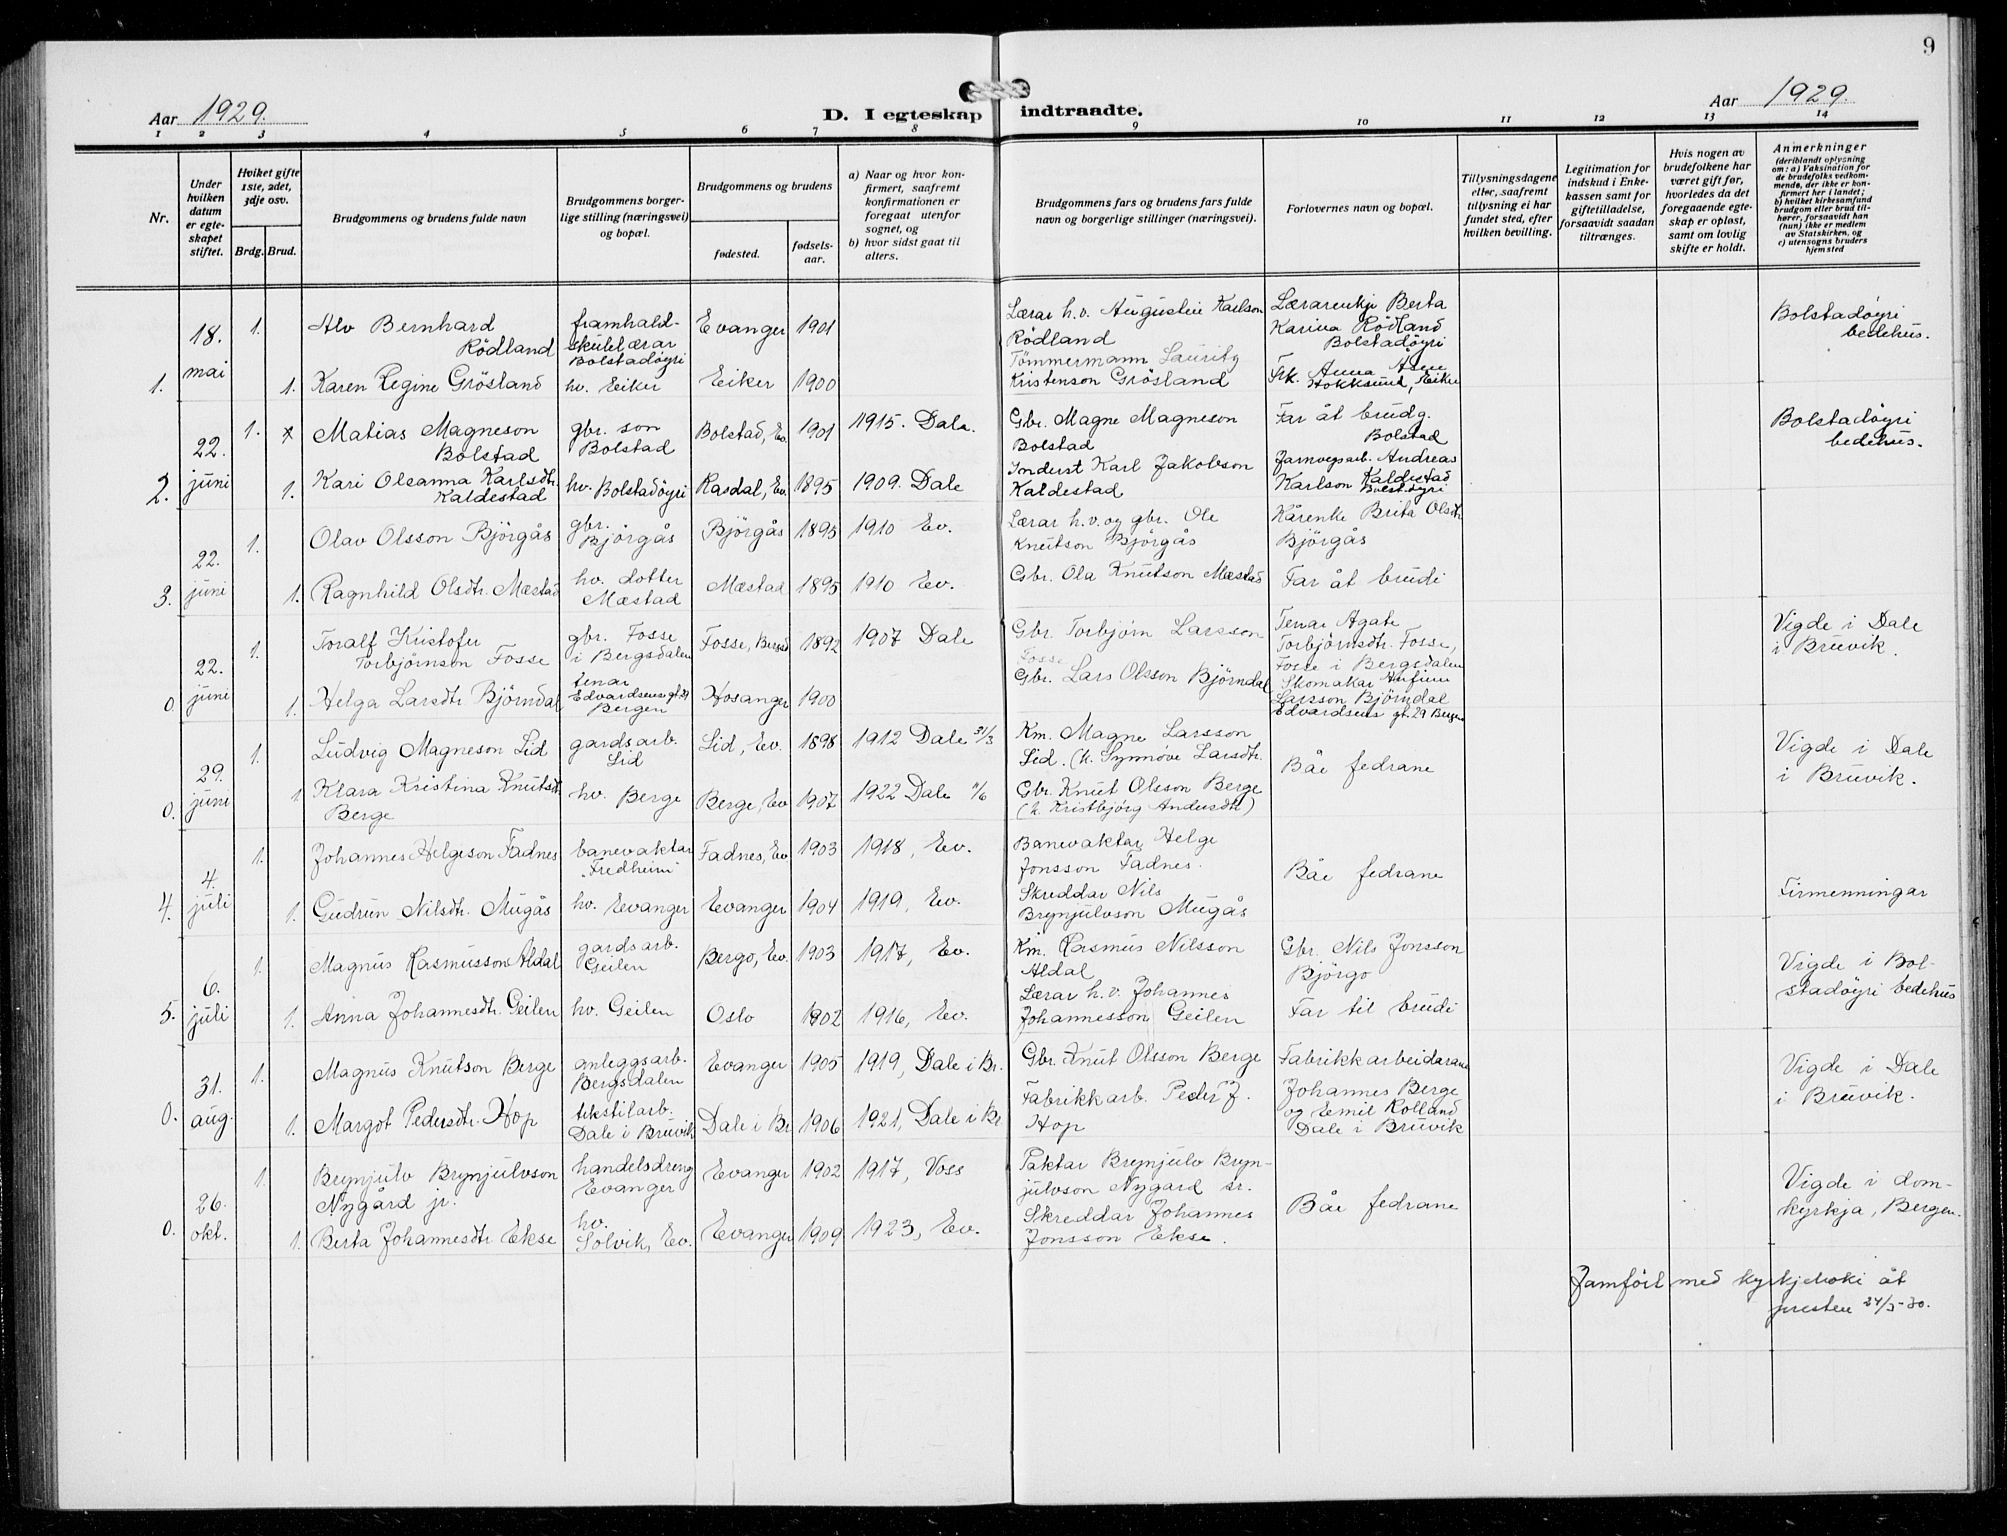 9
Aar 1929.
D. I egteskap indtraadte.
Aar 1929.
1 2 3 4 5 6 7 8 9 10 11 12 13 14
Nr.
Under hvilken datum er egte-skapet stiftet.
Hviket gifte 1ste, 2det, 3dje osv.
Brdg. Brud.
Brudgommens og brudens fulde navn
Brudgommens borger-lige stilling (næringsvei) og bopæl.
Brudgommens og brudens
fødested.
fødsels-aar.
a) Naar og hvor kon-firmert, saafremt konfirmationen er foregaat utenfor sognet, og
b) hvor sidst gaat til alters.
Brudgommens fars og brudens fars fulde navn og borgerlige stillinger (næringsvei).
Forlovernes navn og bopæl.
Tillysningsdagene eller, saafremt tillysning ei har fundet sted, efter hvilken bevilling.
Legitimation for indskud i Enke-kassen samt for giftetilladelse, forsaavidt saadan tiltrænges.
Hvis nogen av brudefolkene har været gift før, hvorledes da det foregaaende egte-skap er opløst, samt om lovlig skifte er holdt.
Anmerkninger
(deriblandt oplysning om: a) Vaksination for de brudefolks vedkom-mende, der ikke er kon-firmert her i landet; b) hvilket kirkesamfund brudgom eller brud til-hører, forsaavidt han (hun) ikke er medlem av Statskirken, og c) utensogns bruders hjemsted
1. 18. mai
1. Alv Bernhard Rödland
framhald-skulelærar Bolstadøyri
Evanger 1901
Lærar h.v. Augustin Karlson Rödland
Lærarenkje Berta Karina Rödland Bolstadöyri
Bolstadöyri bedehus.
1. Karen Regine Grösland
hv. Eiker
Eiker 1900
Tömmermann Lauritz Kristenson Grösland
Frk. Anna Åsen Hokksund, Eiker
2. 22. juni
1. Matias Magneson Bolstad
gbr. son Bolstad
Bolstad, Ev. 1901 1915. Dale.
Gbr. Magne Magneson Bolstad
Far åt brudg. Bolstad
Bolstadöyri bedehus.
1. Kari Oleanna Karlsdtr. Kaldestad
hv. Bolstadöyri
Rasdal, Ev. 1895 1909. Dale
Inderst Karl Jakobson Kaldestad
Jarnvegsarb. Andreas Karlson Kaldestad Bolst.öyri
3. 22. juni
1. Olav Olsson Björgås
gbr. Björgås
Björgås 1895 1910 Ev.
Lærar h.v. og gbr. Ole Knutson Björgås
Kårenke Brita Olsdtr Björgås
1. Ragnhild Olsdtr. Mæstad
hv. dotter Mæstad
Mæstad 1895 1910 Ev.
Gbr. Ola Knutson Mæstad
Far åt brudi
0. 22. juni
1. Toralf Kristofer Torbjörnson Fosse
gbr. Fosse i Bergsdalen
Fosse, Bergsd 1892 1907 Dale
Gbr. Torbjörn Larsson Fosse
Tenar Agate Torbjörnsdtr. Fosse, Fosse i Bergsdalen
Vigde i Dale i Bruvik.
1. Helga Larsdtr. Björndal
tenar Edvardsens gt. 29 Bergen
Hosanger 1900
Gbr. Lars Olsson Björndal
Skomakar Anfinn Larsson Björndal Edvardsens gt. 29 Bergen
0. 29. juni
1. Ludvig Magneson Lid
gardsarb. Lid
Lid, Ev. 1898 1912 Dale 31/3
Km. Magne Larsson Lid. (k. Synnøve Larsdtr.
Båe fedrane
Vigde i Dale i Bruvik.
1. Klara Kristina Knutsdt Berge
hv. Berge
Berge, Ev 1907 1922 Dale 11/6
Gbr. Knut Olsson Berge (k. Kristbjörg Andersdtr)
4. 4. juli
1. Johannes Helgeson Fadnes
banevaktar Fredheim
Fadnes, Ev 1903 1918, Ev.
Banevaktar Helge Jonsson Fadnes.
Båe fedrane
Firmenningar
1. Gudrun Nilsdtr. Mugås
hv. Evanger
Evanger 1904 1919, Ev.
Skreddar Nils Brynjulvson Mugås
5. 6. juli
1. Magnus Rasmusson Aldal
gardsarb. Geilen
Bergo, Ev. 1903 1917, Ev.
Km. Rasmus Nilsson Aldal
Gbr. Nils Jonsson Björgo
Vigde i Bol-stadöyri bedehus
1. Anna Johannesdtr. Geilen
hv. Geilen
Oslo 1902 1916, Ev.
Lærar h.v. Johannes Johannesson Geilen
Far til brudi
0. 31. aug.
1. Magnus Knutson Berge
anleggsarb. Bergsdalen
Evanger 1905 1919, Dale i Br.
Gbr. Knut Olsson Berge
Fabrikkarbeidarane Johannes Berge og Emil Rolland Dale i Bruvik
Vigde i Dale i Bruvik.
1. Margot Pedersdtr. Hop
tekstilarb. Dale i Bruvik
Dale i Br 1906 1921, Dale i Br.
Fabrikkarb. Peder J. Hop
0. 26. okt.
1. Brynjulv Brynjulvson Nygård jr.
handelsdreng Evanger
Evanger 1902 1917, Voss
Paktar Brynjulv Bryn-julvson Nygard sr.
Båe fedrane
Vigde i dom-kyrkja, Bergen.
1. Berta Johannesdtr Ekse
hv. Solvik, Ev.
Evanger 1909 1923, Ev.
Skreddar Johannes Jonsson Ekse.
Jamfört med kyrkjeboki åt
presten 24/3-30.